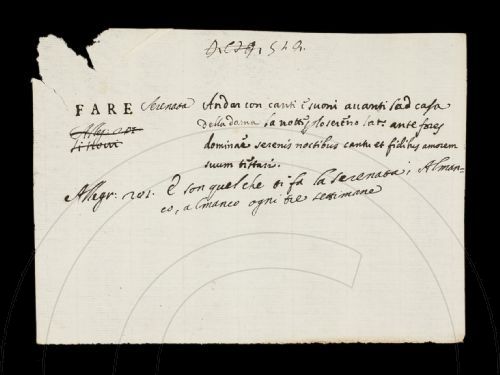 FARE Serenata Andar con canti e suoni avanti la casa
della dama la notte, lo sereno lat. ante fores
dominae serenis noctibus cantu et fidibus amorem
suum
Allegr: 201. E son quel che vi fa la serenata; Alman-
co, almanco ogni tre settimane